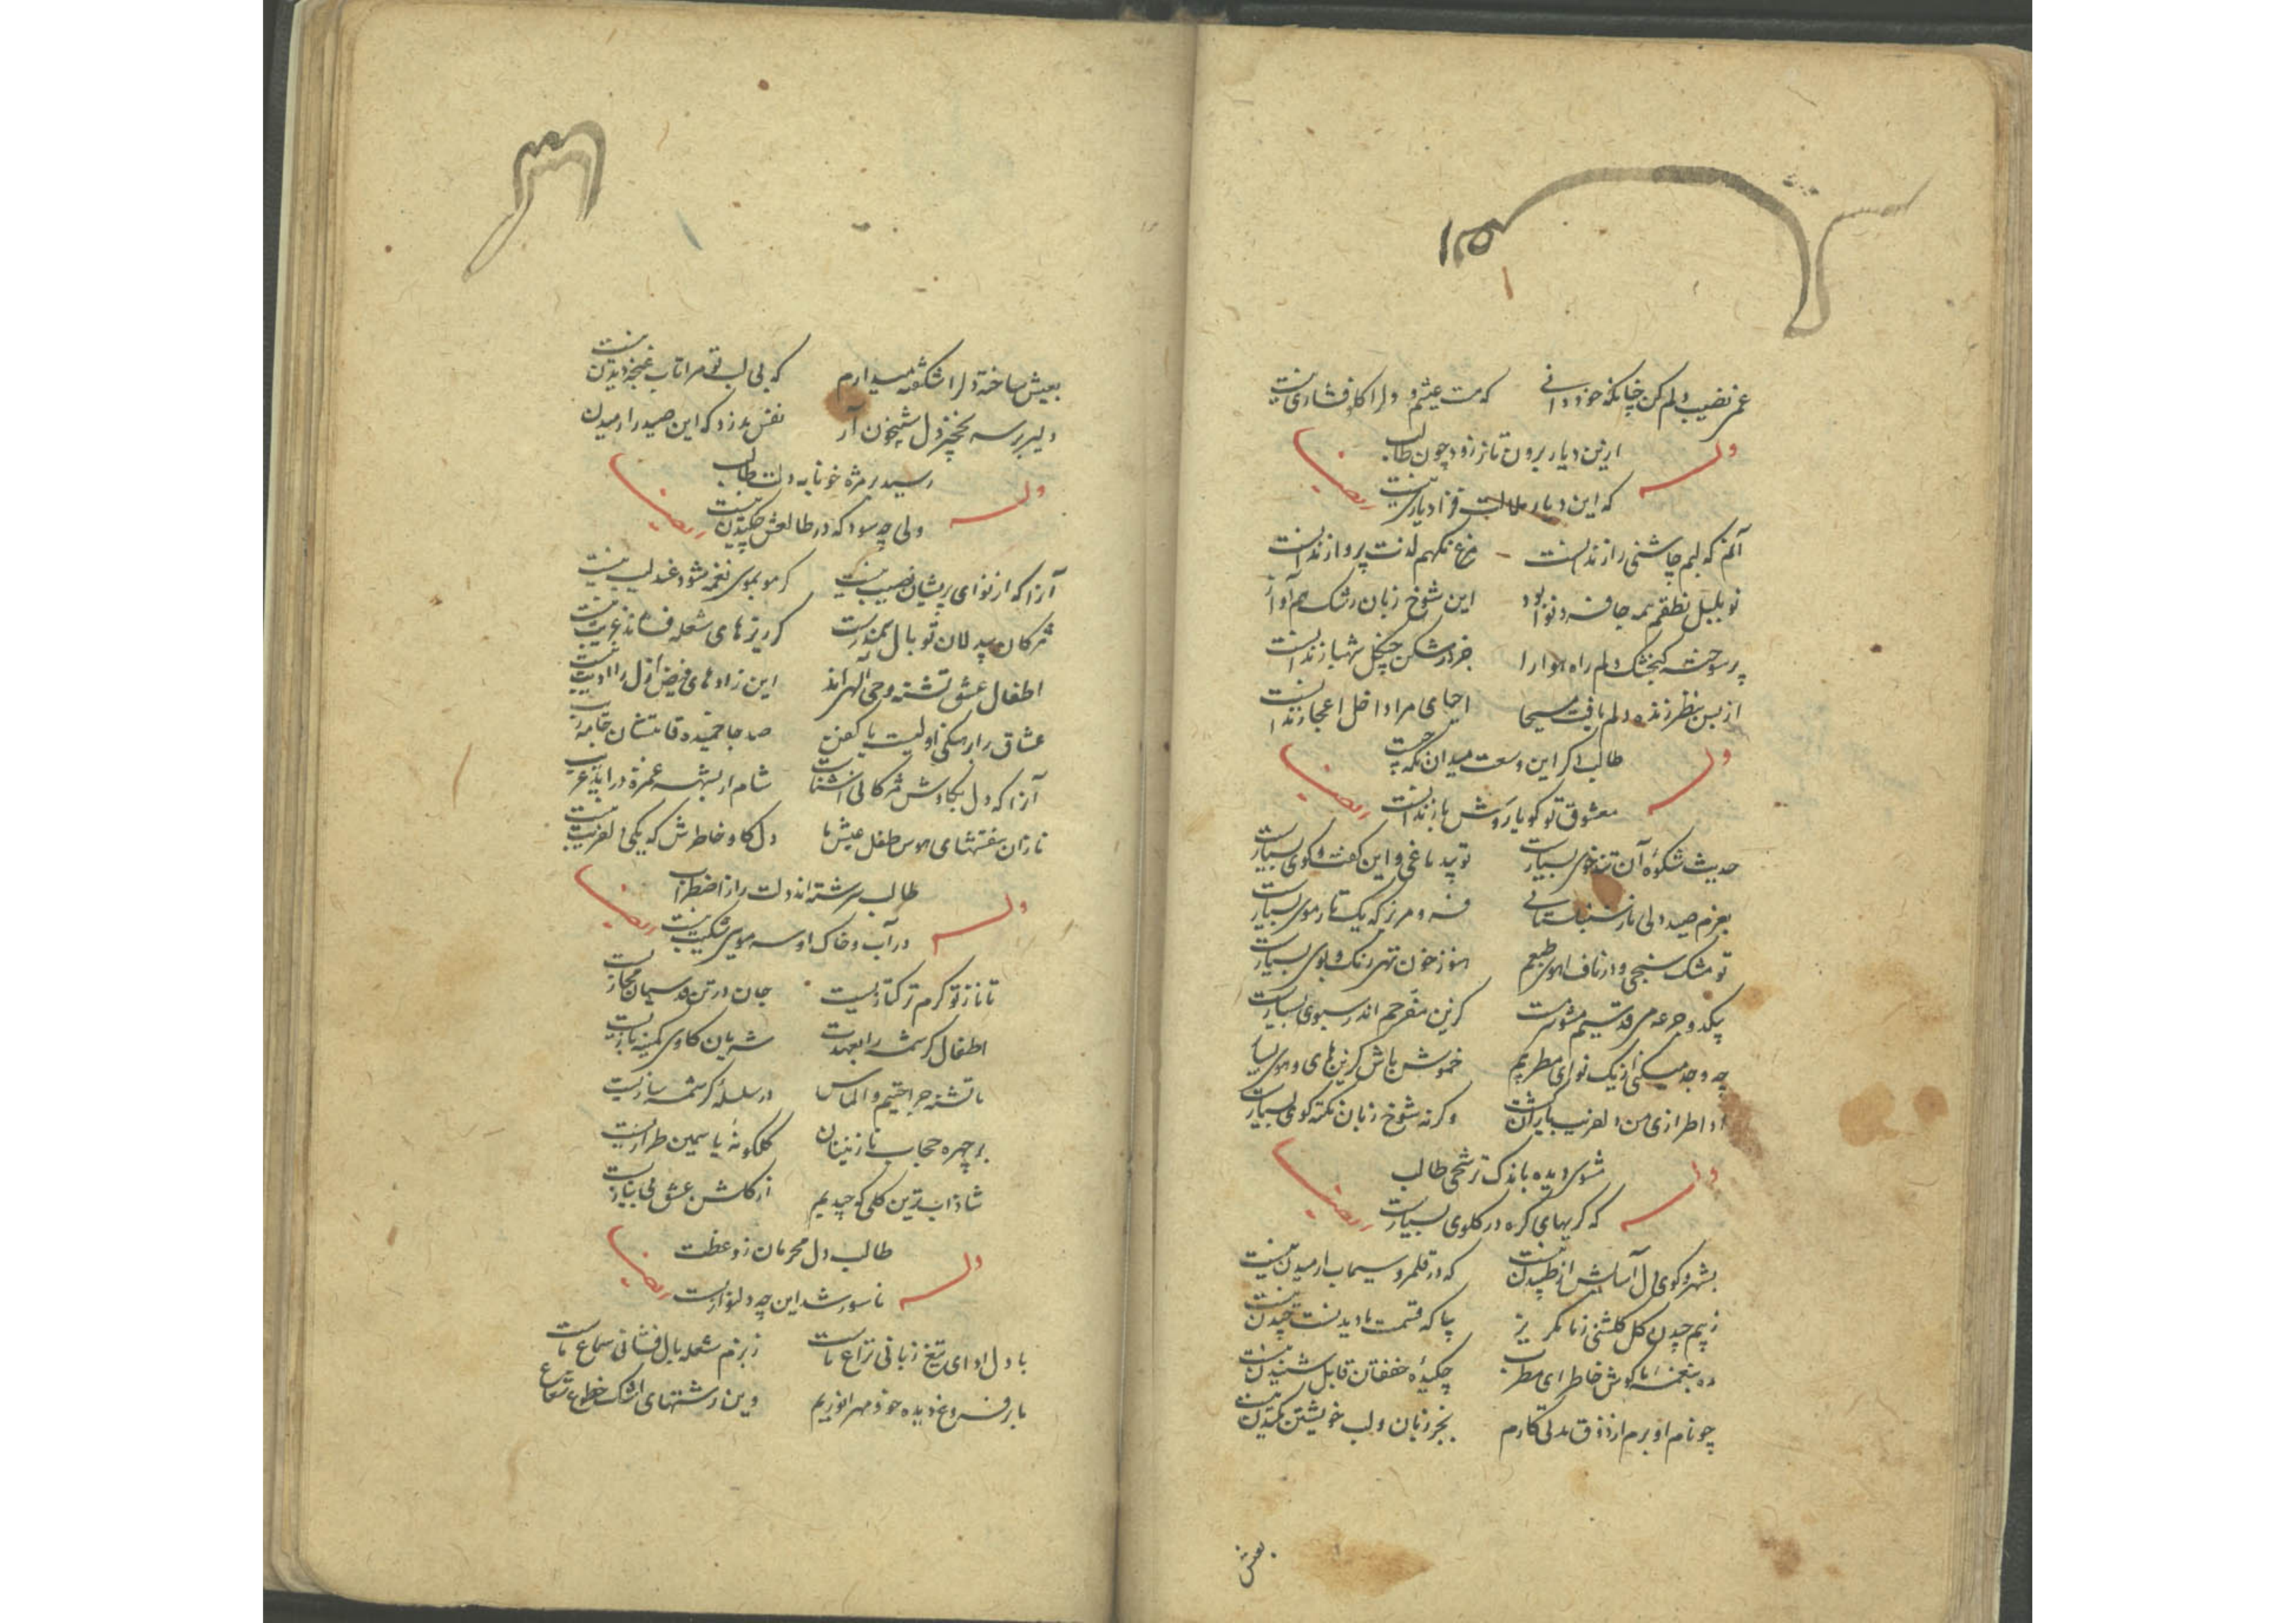 غم نصیب دلم کن چنانکه خود دانی
که مست عیشم و دل را کلو فشاری نیست
ازین دیار برون تاز زود چون طالب
وله
که این دیار طالب قرا دیاری نیست
ایضا
آنم که لبم چاشنی راز ندانست
مرغ نگهم لذت پرواز ندانست
نو بلبل نطقم همه جا نوا بود
این شوخ زبان رشک هم آواز
پر سوخته گنجشک دلم راه هوا را
خود رشکن چنگل شهباز ندانست
از بس بنظر زنده دلم یافت مسیحا
احیای مرا داخل اعجاز ندانست
طالب اگر این وسعت میدان نگه چیست
وله
معشوق تو گویا روش ناز ندانست
ایضا
حدیث شکوه آن تندخوی بسیارست
تو بیدماغی و این گفت و گوی بسیارست
بعزم صید دلی ناز سنبلستانی
فرو مریز که یک تار موی بسیارست
تو مشک سنجی و از ناف آهوی طبعم
هنوز خون تهی رنگ و بوی بسیارست
بیک دو جرعه می قدسیم مشو سرمست
کزین مفرح خم اندر سبوی بسیارست
چه وجد میکنی از یک نوای مطربیم
خموش باش کزین های و هوی بسیار
ادا طرازی من دلفریب یارانست
وگرنه شوخ زبان نکته گوی بسیارست
مشوی دیده باندک ترشحی طالب
وله
که گریهای گره در گلوی بسیارست
ایضا
بشهر و کوی دل آسایش از طپیدن نیست
که در قلمرو سیماب آرمیدن نیست
ز بیم چیدن گل گلشنی ز ما مگریز
بیا که قسمت ما دیدنست چیدن نیست
ره بنغمه ما گوش خاطر ای مطرب
چکیده خفقان قابل شنیدن نیست
چو نام او برم از ذوق مدتی کارم
بجز زبان و لب خویشتن مکیدن نیست
بعیش
بعیش ساخته دل را شکفته میدارم
که بی لب تو مرا تاب غنچه دیدن نیست
دلیر بر سر نخچیر دل شبیخون آر
نفس بدزد که این صید را رمیدن
رسید بر مژه خونابه دلت طالب
وله
ولی چه سود که در طالعش چکیدن نیست
ایضا
آنرا که از نوای پریشان نصیب نیست
گر مو بموی نغمه شود عندلیب نیست
مژگان بیدلان تو بال سمندرست
گر ریزهای شعله فشاند غریب نیست
اطفال عشق تشنه وحی الهی اند
این زادهای فیض ازل را ادیب نیست
عشاق را برهنگی اولیست یا کفن
صد جا خمیده قامتشان جامه
آنرا که دل بکاوش مژگانی آشناست
نازان بنفشهای هوس طفل عیش ما
دل کاو خاطرش که یکی دلفریب نیست
طالب سرشته اند دلت را ز اضطراب
وله
در آب و خاک او سر موی شکیب نیست
ایضا
تا ناز تو گرم ترکتازیست
جان در تن قدسیان مجازیست
اطفال کرشمه را بعهدت
شریان کاوی کمینه بازیست
ما تشنه جراحتیم و الماس
در سلسله کرشمه سازیست
بر چهره حجاب نازنینان
گلگونه یاسمین طرازیست
شاداب ترین گلی که چیدیم
از گلشن عشق بی نیازیست
طالب دل محرمان ز وعظت
وله
ناسور شد این چه دلنوازیست
ایضا
با دل ادای تیغ زبانی نزاع ماست
بزم شعله بال فشانی سماع ماست
ما بر فروغ دیده خود مهر انوریم
وین رشتهای اشک خطوط شعاع